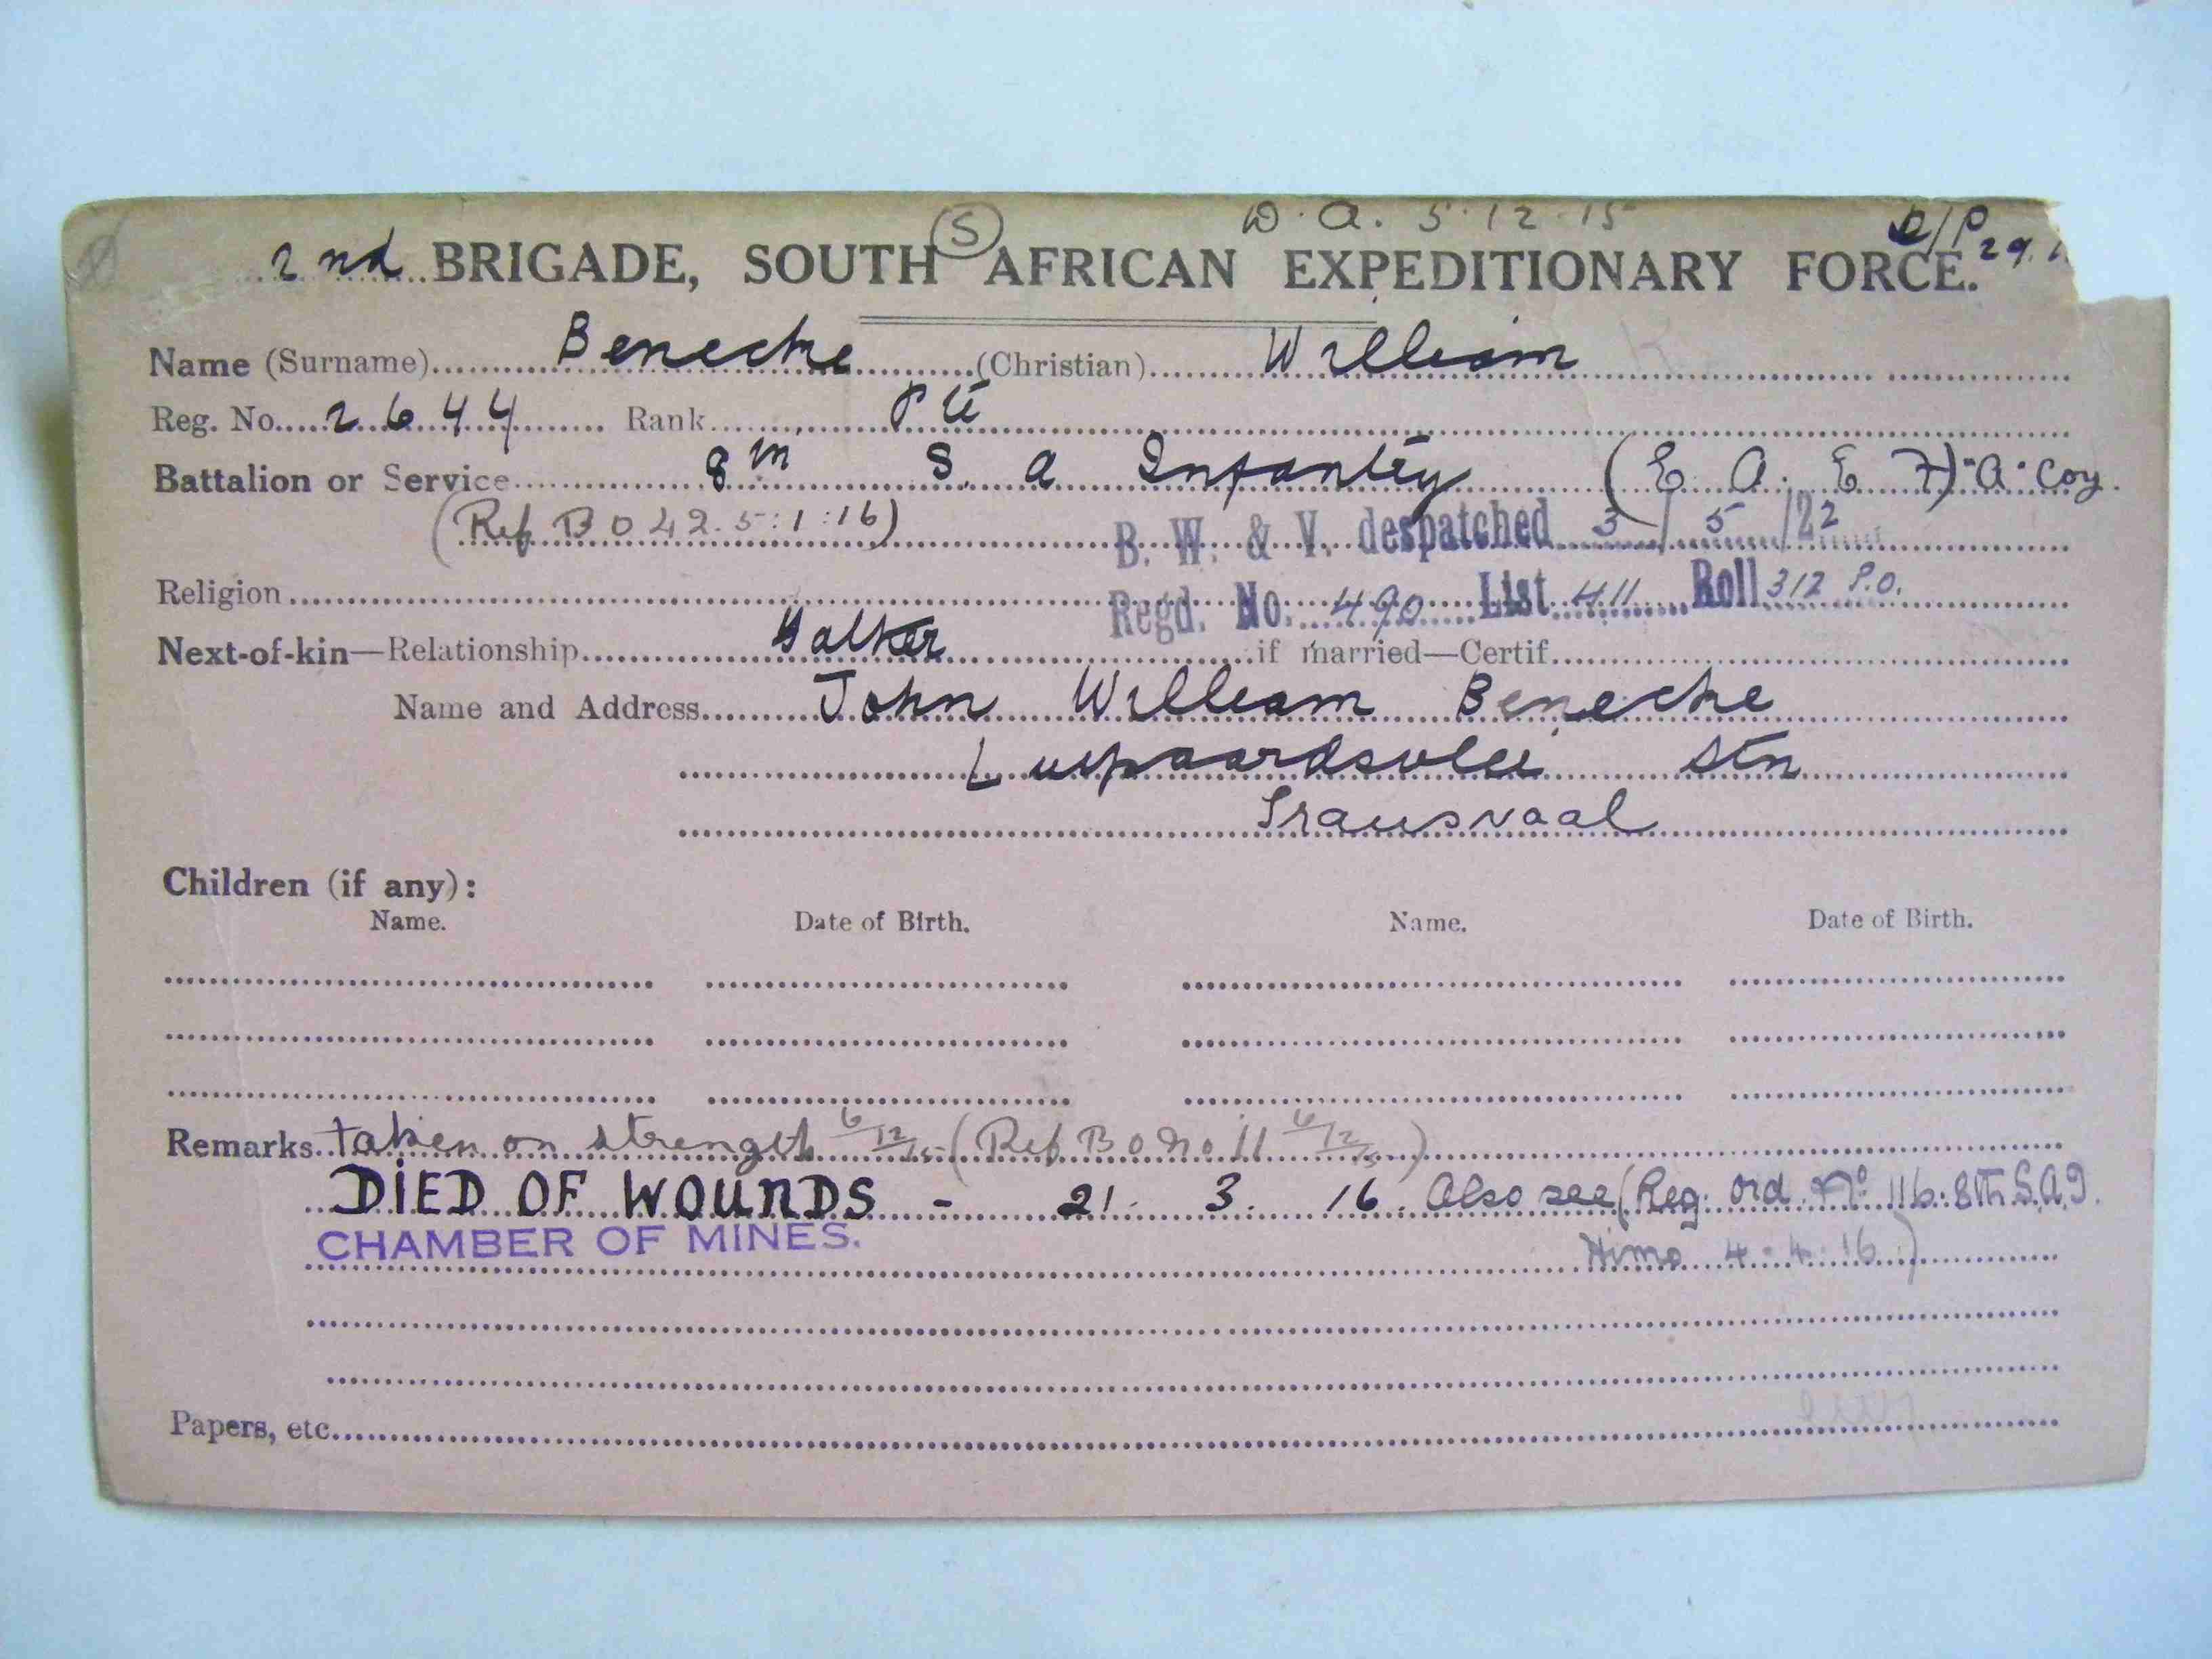 S D. A. 5.12.15 D/P 29.
2nd BRIGADE, SOUTH AFRICAN EXPEDITIONARY FORCE.
Name (Surname) Benecke (Christian) William
Reg. No. 2644 Rank Pte
Battalion or Service 8th S. A Infantry (E. A. E. F) "A" Coy.
(Ref B O 42. 5:1:16) B. W. & V. despatched 3/5/22
Religion Regd. No. 490 List 411 Roll 312 P.O.
Next-of-kin—Relationship Father if married—Certif.
Name and Address John William Benecke
Luipaardsvlei Stn
Transvaal
Children (if any):
Name. Date of Birth. Name. Date of Birth.
Remarks taken on strength 6/12/15 (Ref B O No 11 6/12/15)
DIED OF WOUNDS - 21. 3. 16. Also see (Reg. ord. No 116: 8th S.A.I.
CHAMBER OF MINES. Himo 4.4.16)
Papers, etc.